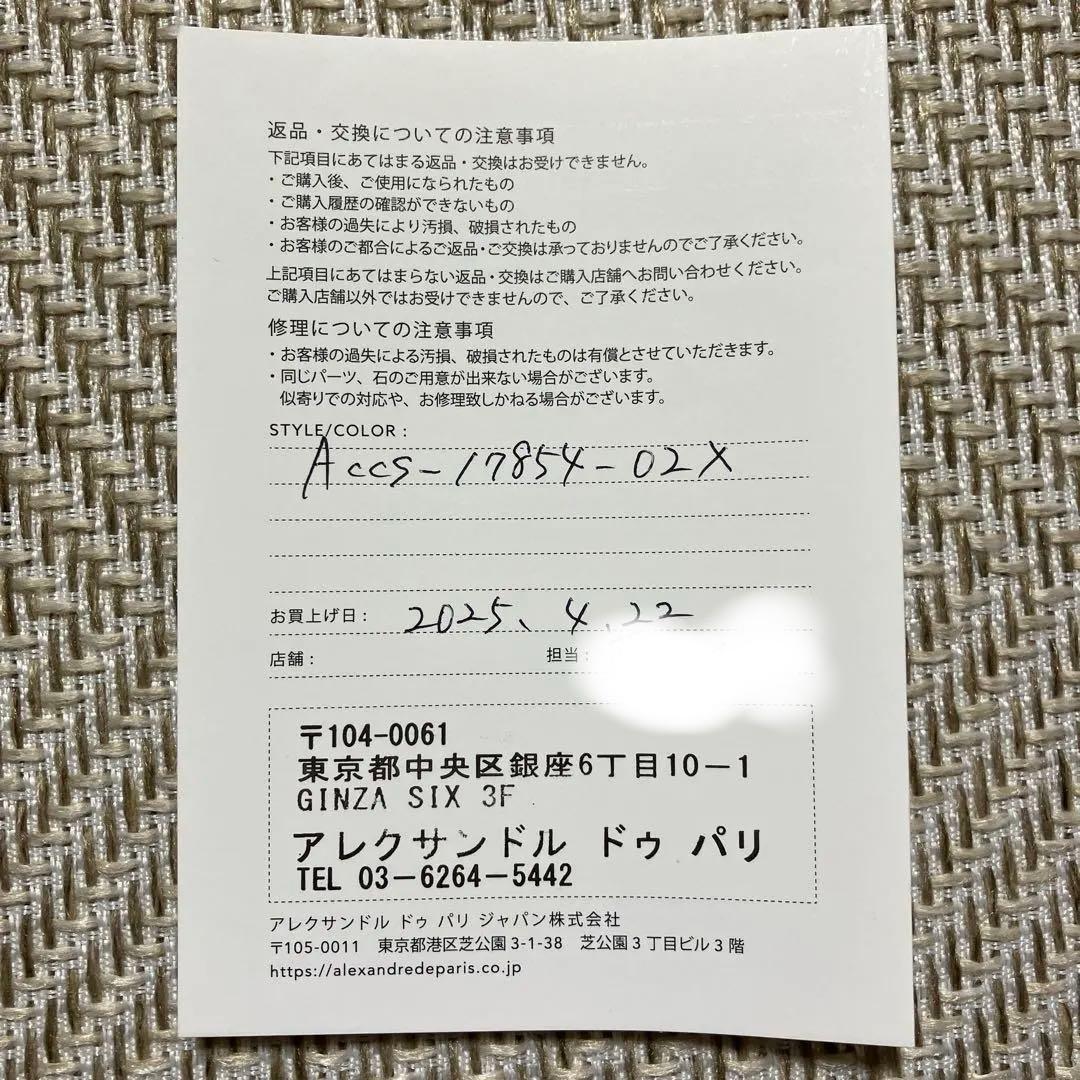 返品・交換についての注意事項
下記項目にあてはまる返品・交換はお受けできません。
・ご購入後、ご使用になられたもの
・ご購入履歴の確認ができないもの
・お客様の過失により汚損、破損されたもの
・お客様のご都合によるご返品・ご交換は承っておりませんのでご了承ください。
上記項目にあてはまらない返品・交換はご購入店舗へお問い合わせください。
ご購入店舗以外ではお受けできませんので、ご了承ください。
修理についての注意事項
・お客様の過失による汚損、破損されたものは有償とさせていただきます。
・同じパーツ、石のご用意が出来ない場合がございます。
似寄りでの対応や、お修理致しかねる場合がございます。
STYLE/COLOR :
Accs-17854-02X
お買上げ日 : 2025、4.22
店舗 : 担当 :
〒104-0061
東京都中央区銀座6丁目10-1
GINZA SIX 3F
アレクサンドル ドゥ パリ
TEL 03-6264-5442
アレクサンドル ドゥ パリ ジャパン株式会社
〒105-0011 東京都港区芝公園 3-1-38 芝公園 3 丁目ビル 3 階
https://alexandredeparis.co.jp